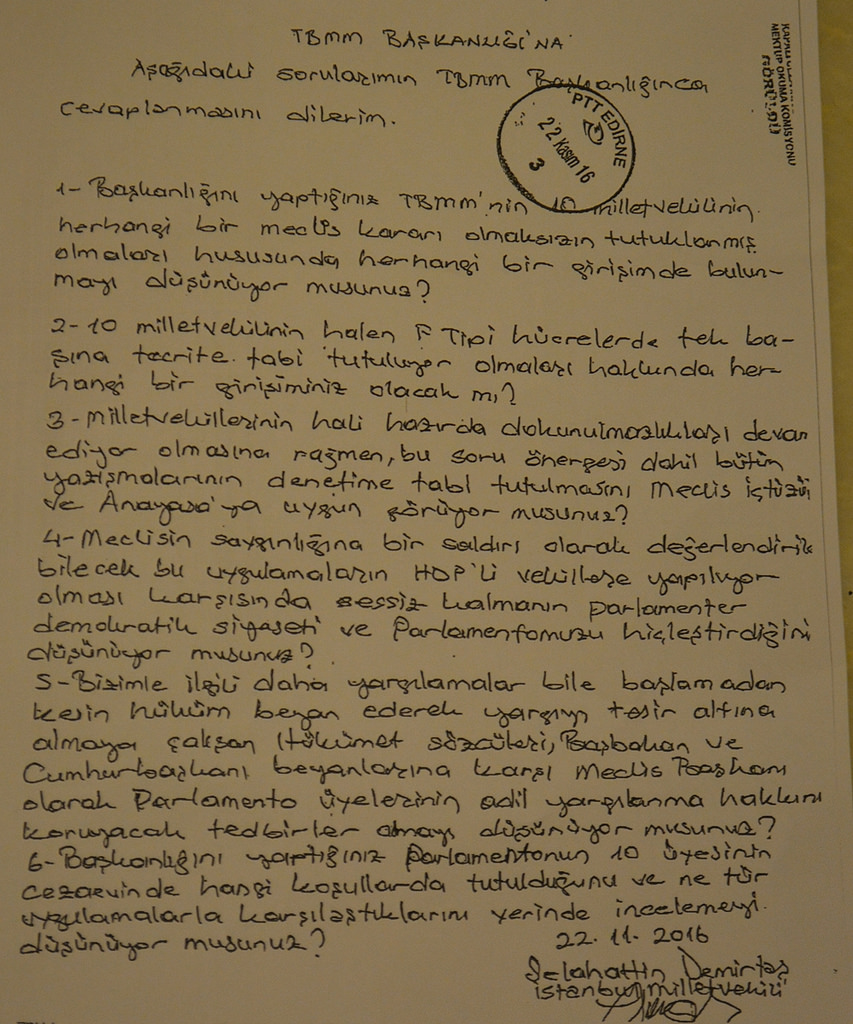 TBMM BAŞKANLIĞI'NA
Aşağıdaki sorularımın TBMM Başkanlığınca
cevaplanmasını dilerim.
MEKTUP OKUMA KOMİSYONU
GÖRÜLDÜ
PTT EDİRNE
22 Kasım 16
3
1- Başkanlığını yaptığınız TBMM'nin 10 milletvekilinin
herhangi bir meclis kararı olmaksızın tutuklanmış
olmaları hususunda herhangi bir girişimde bulun-
mayı düşünüyor musunuz?
2- 10 milletvekilinin halen F Tipi hücrelerde tek ba-
şına tecrite tabi tutuluyor olmaları hakkında her-
hangi bir girişiminiz olacak mı?
3- Milletvekillerinin hali hazırda dokunulmazlıkları devam
ediyor olmasına rağmen, bu soru önergesi dahil bütün
yazışmalarının denetime tabi tutulmasını Meclis içtüzüğü
ve Anayasa'ya uygun görüyor musunuz?
4- Meclisin saygınlığına bir saldırı olarak değerlendirile
bilecek bu uygulamaların HDP'li vekillere yapılıyor
olması karşısında sessiz kalmanın parlamenter
demokratik siyaseti ve Parlamentomuzu hiçleştirdiğini
düşünüyor musunuz?
5- Bizimle ilgili daha yargılamalar bile başlamadan
kesin hüküm beyan ederek yargıyı tesir altına
almaya çalışan Hükümet sözcüleri, Başbakan ve
Cumhurbaşkanı beyanlarına karşı Meclis Başkanı
olarak Parlamento üyelerinin adil yargılanma hakkını
koruyacak tedbirler almayı düşünüyor musunuz?
6- Başkanlığını yaptığınız Parlamentonun 10 üyesinin
cezaevinde hangi koşullarda tutulduğunu ve ne tür
uygulamalarla karşılaştıklarını yerinde incelemeyi
düşünüyor musunuz?
22.11.2016
Selahattin Demirtaş
istanbul milletvekili